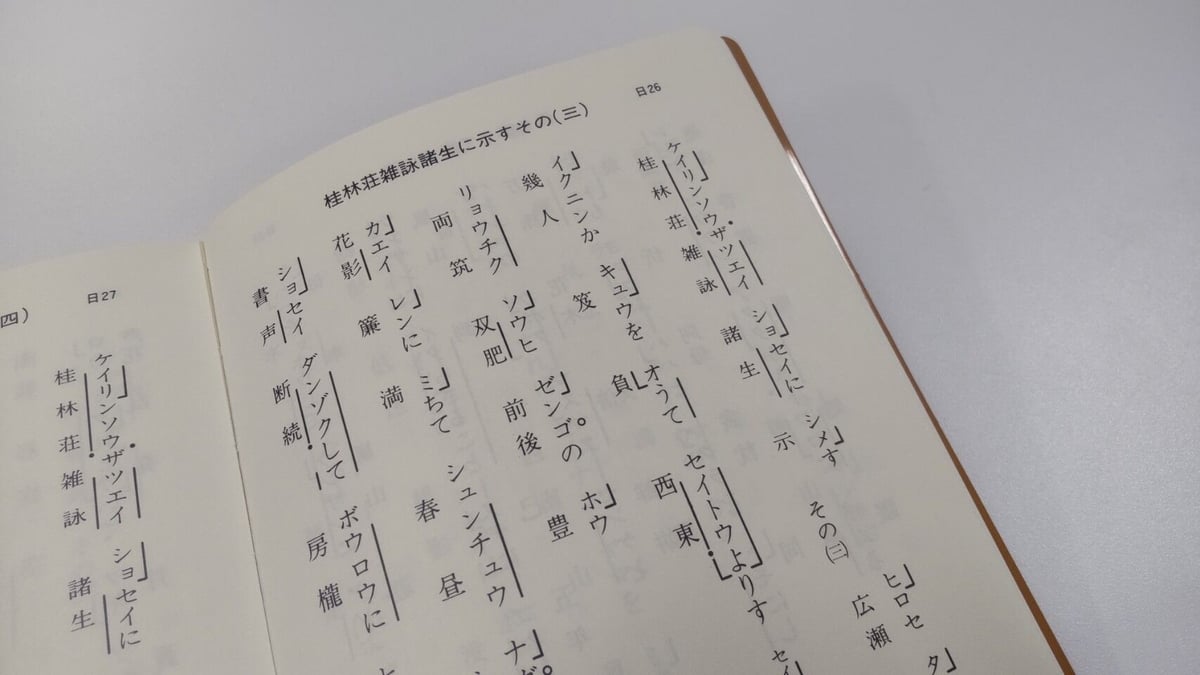 日26
桂林荘雑詠諸生に示すその(三)
ケイリンソウザツエイ ショセイに シメす その(三) ヒロセ タ
桂林荘雑詠 諸生 示 広瀬
イクニンか キュウを オうて セイトウよりす セイ
幾人 笈 負 西東
リョウチク ソウヒ ゼンゴの ホウ
両筑 双肥 前後 豊
カエイ レンに ミちて シュンチュウ ナガ
花影 簾 満 春昼
ショセイ ダンゾクして ボウロウに
書声 断続 房櫳
日27
四)
ケイリンソウザツエイ ショセイに
桂林荘雑詠 諸生